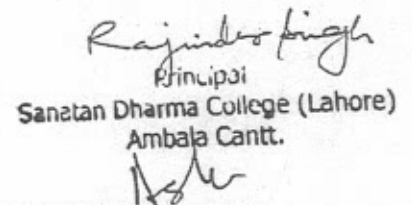 Rajinder Singh
Principal
Sanatan Dharma College (Lahore)
Ambala Cantt.